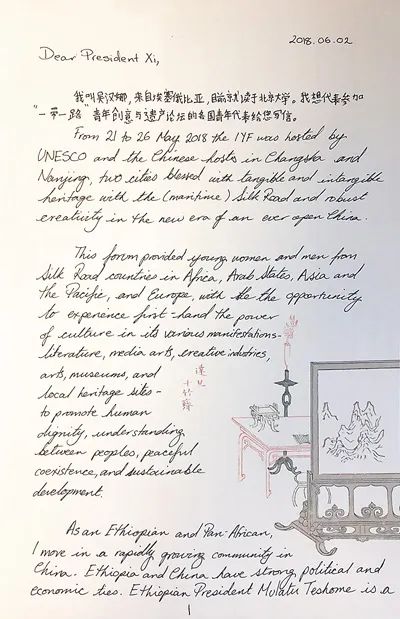 2018.06.02
Dear President Xi,
我叫吴汉娜，来自埃塞俄比亚，目前就读于北京大学。我想代表参加
"一带一路"青年创意与遗产论坛的各国青年代表给您写信。
From 21 to 26 May 2018 the IYF was hosted by
UNESCO and the Chinese hosts in Changsha and
Nanjing, two cities blessed with tangible and intangible
heritage with the (maritime) Silk Road and robust
creativity in the new era of an ever open China.
This forum provided young women and men from
Silk Road countries in Africa, Arab States, Asia and
the Pacific, and Europe, with the the opportunity
to experience first-hand the power
of culture in its various manifestations-
literature, media arts, creative industries,
arts, museums, and
local heritage sites-
to promote human
dignity, understanding
between peoples, peaceful
coexistence, and sustainable
development.
As an Ethiopian and Pan African,
I move in a rapidly growing community in
China. Ethiopia and China have strong political and
economic ties. Ethiopian President Mulatu Teshome is a
1